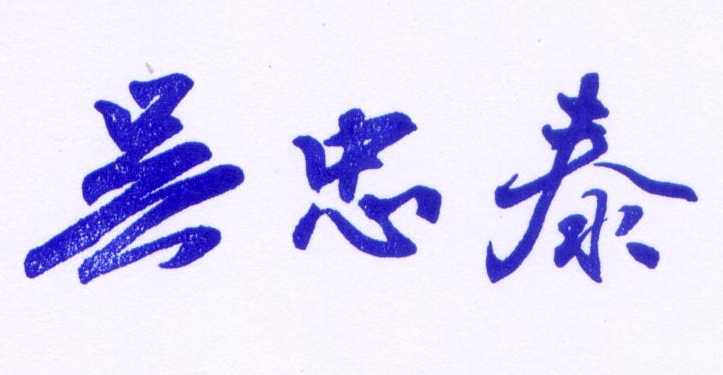 吴忠泰